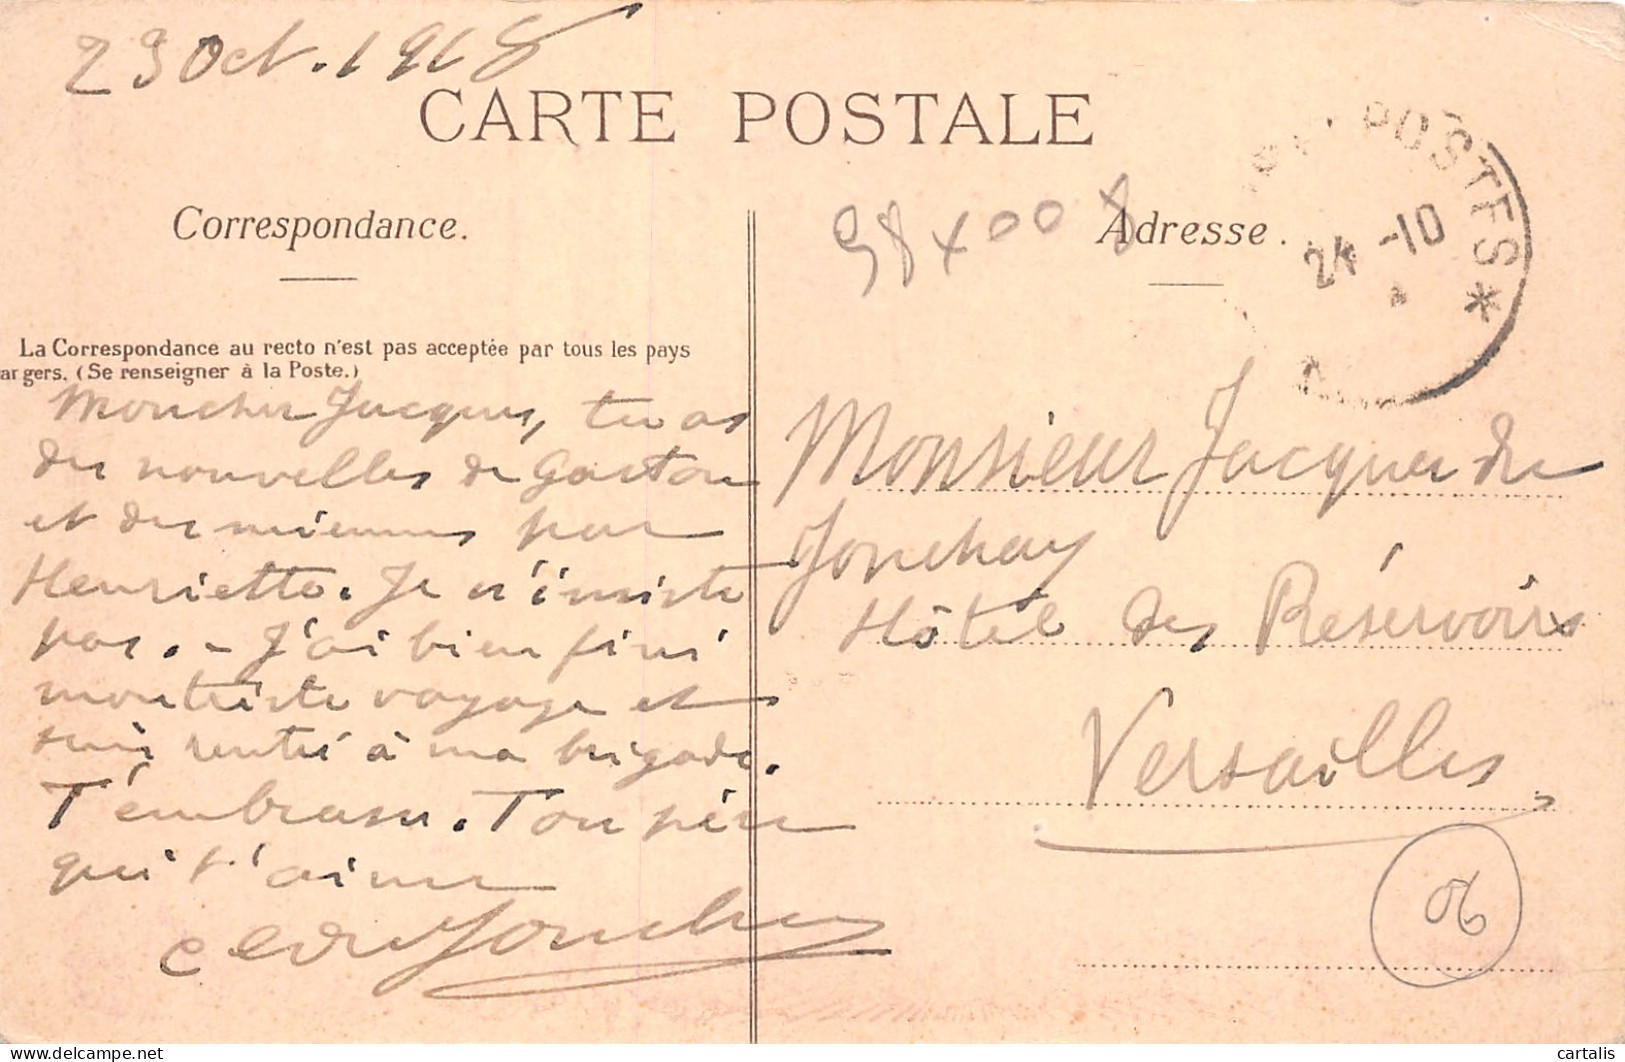 23 Oct. 1918
CARTE POSTALE
Correspondance.
La Correspondance au recto n'est pas acceptée par tous les pays
argers. (Se renseigner à la Poste.)
Mon cher Jacques, tu as
des nouvelles de Gaston
et des miennes par
Henriette. Je n'insiste
pas. - J'ai bien fini
mon triste voyage et
suis rentré à ma brigade.
T'embrasse. Ton père
qui t'aime
de Jonchay
98x00 8
Adresse.
POSTES *
24 -10
Monsieur Jacques de
Jonchay
Hôtel des Réservoirs
Versailles
06
delcampe.net
cartalis